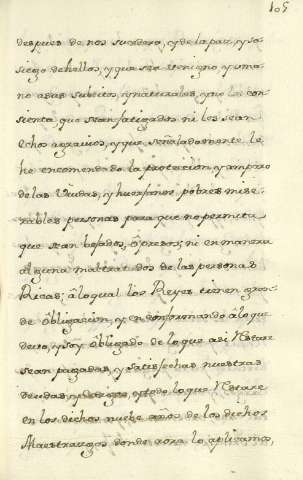 105
despues de nos sucediere, y de la paz, y so-
siego de hellos, y que sea benigno, y uma-
no a sus subitos, y naturales, y no los con-
sienta que sean fatigados ni les sean
echos agravios, y que señaladamente le
he encomendado la protecion, y amparo
de las Viudas, y huerfanos pobres mise-
rables personas para que no permita
que sean bejados, ôpresos; ni en manera
alguna maltratados de las personas
Ricas; â lo qual los Reyes tienen gran-
de ôbligacion, y en conformando â lo que
devo, y soy ôbligado de lo que asi Restare
sean pagadas, y satisfechas nuestras
deudas, y cargos, y todo lo que Restare
en los dichos nuebe años de los dichos
Maestrazgos donde aora lo aplicamos,